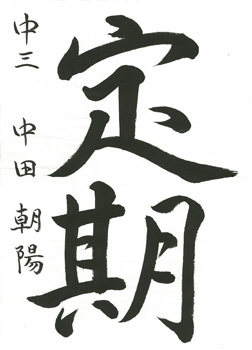 定期
中三 中田朝陽